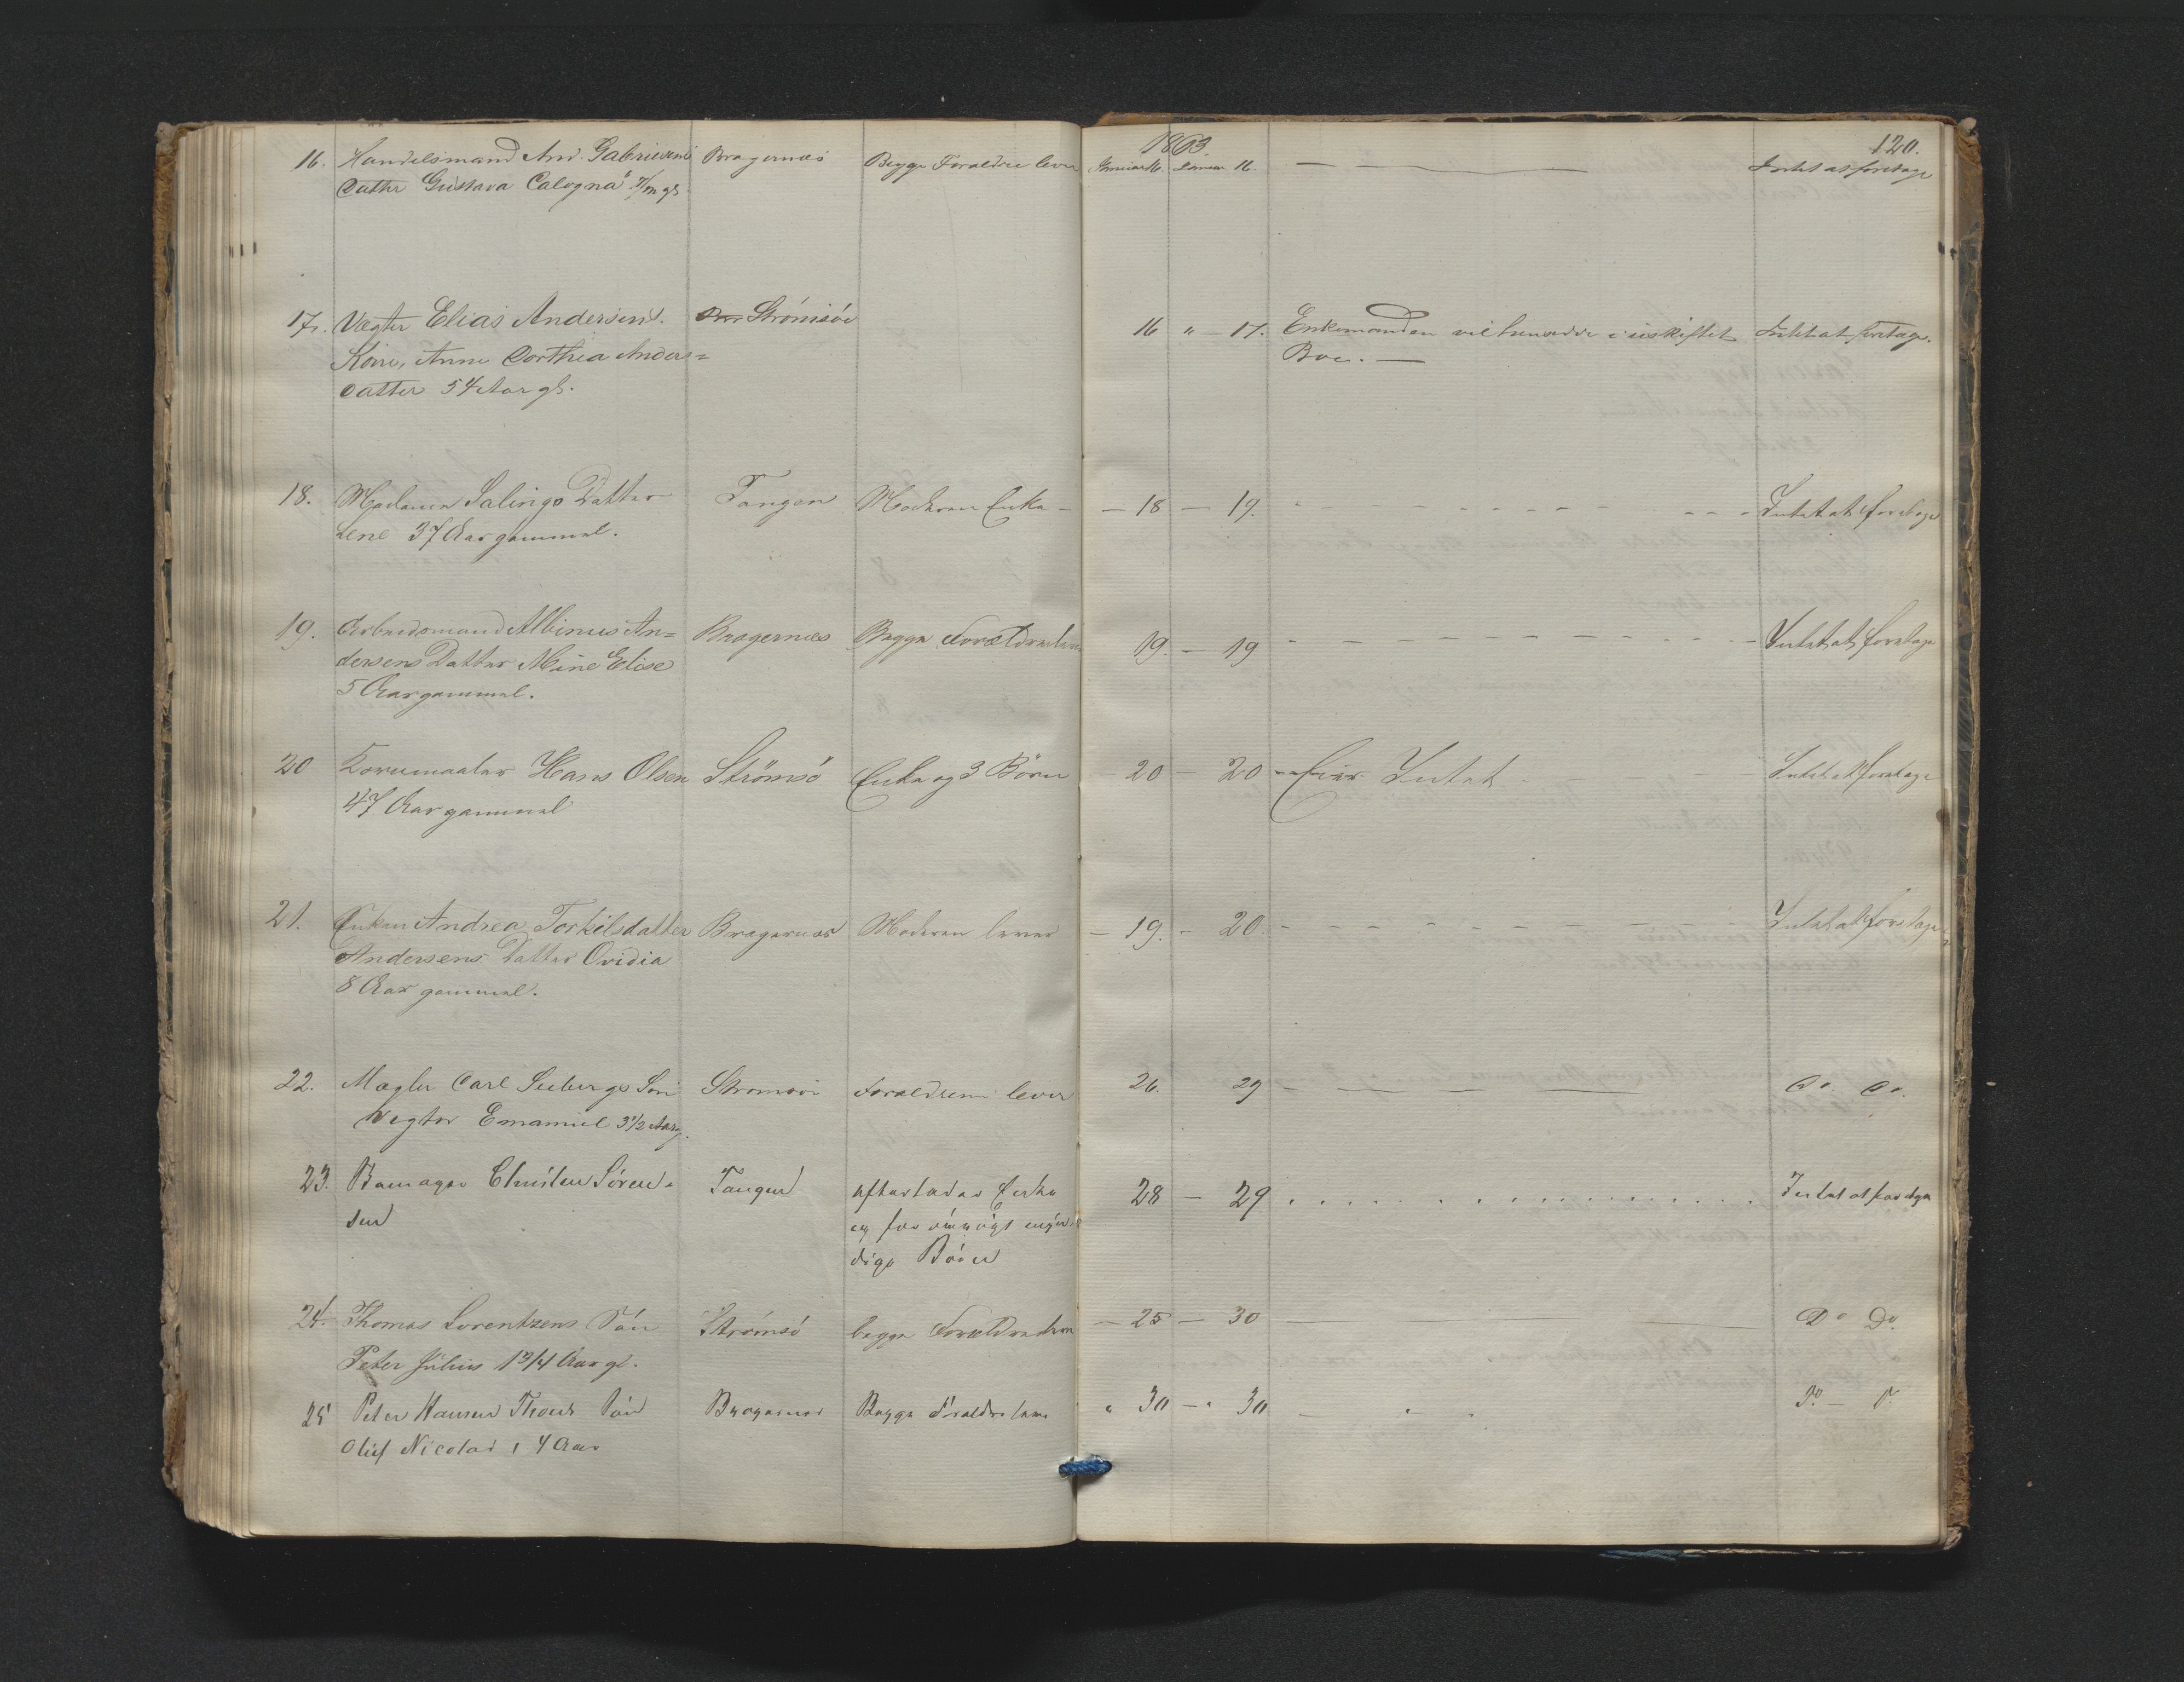 1863.
120.
16. Handelsmand And. Gabrielsens Bragernæs Begge Forældre lever Januar 16. Januar 16. Intet at foretage
Datter Gustava 7/m gl.
17. Vægter Elias Andersens Strömsöe 16 " - 17. Enkemanden vil hensidde i uskiftet Intet at foretage.
Kone, Anne Dorthea Anders=
Boe. —
datter 54 Aar gl.
18. Madame Salings Datter Tangen Moderen Enke - - 18 - 19. Intet at foretage
Lene 37 Aar gammel.
19. Arbeidsmand Albinus An= Bragernæs Begge Forældre leve 19. - 19 Intet at foretage
dersens Datter Mine Elise
5 Aar gammel.
20 Kornmaaler Hans Olsen Strömsö Enke og 3 Börn 20 - 20 Eier Intet Intet at foretage
47 Aar gammel
21. Enken Andrea Torkilsdatter Bragernæs Moderen lever - 19. - 20 Intet at foretage
Andersens Datter Ovidia
8 Aar gammel.
22. Mægler Carl Seebergs Sön Strömsöe Forældrene lever 26. 29 Do. Do.
Vegtor Emanuel 3 1/2 Aar g.
23. Christen Sören- Tangen efterlader Enke 28 - 29 Intet at foretage
sen
og
dige Börn
24. Thomas Lorentzens Sön Strömsö begge Forældre leve - 25 - 30 Do Do.
Peter Julius 1 3/4 Aar gl.
25 Peter Hansen Sön Bragernæs Begge Forældre leve " 30 - " 30 Do. - Do.
Oluf Nicolai 4 Aar